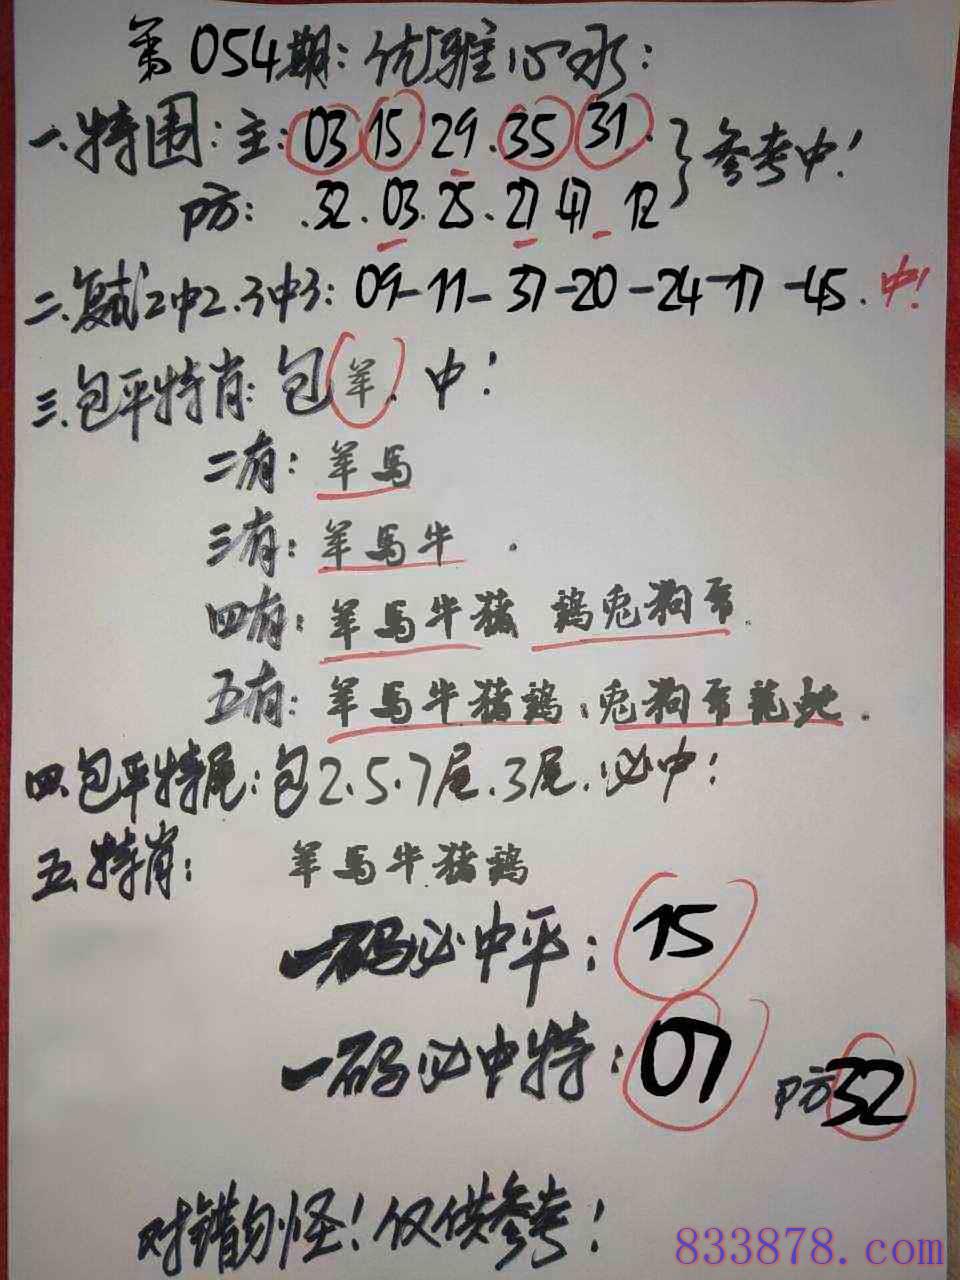 第054期：优雅心水：
一.特围：主：03 15.29.35 31.
参考中！
防：.32.03.25.27.47 12
二.复试2中2.3中3：09-11-37-20-24-17-45.中！
三.包平特肖：包羊.中！
二有：羊马
三有：羊马牛.
四有：羊马牛猪 鸡兔狗
五有：羊马牛猪鸡.兔狗 龙蛇.
四.包平特尾：包2.5.7尾.3尾.必中！
五.特肖： 羊马牛猪鸡
一码必中平：15
一码必中特：07 防32
对错勿怪！仅供参考！
833878.com